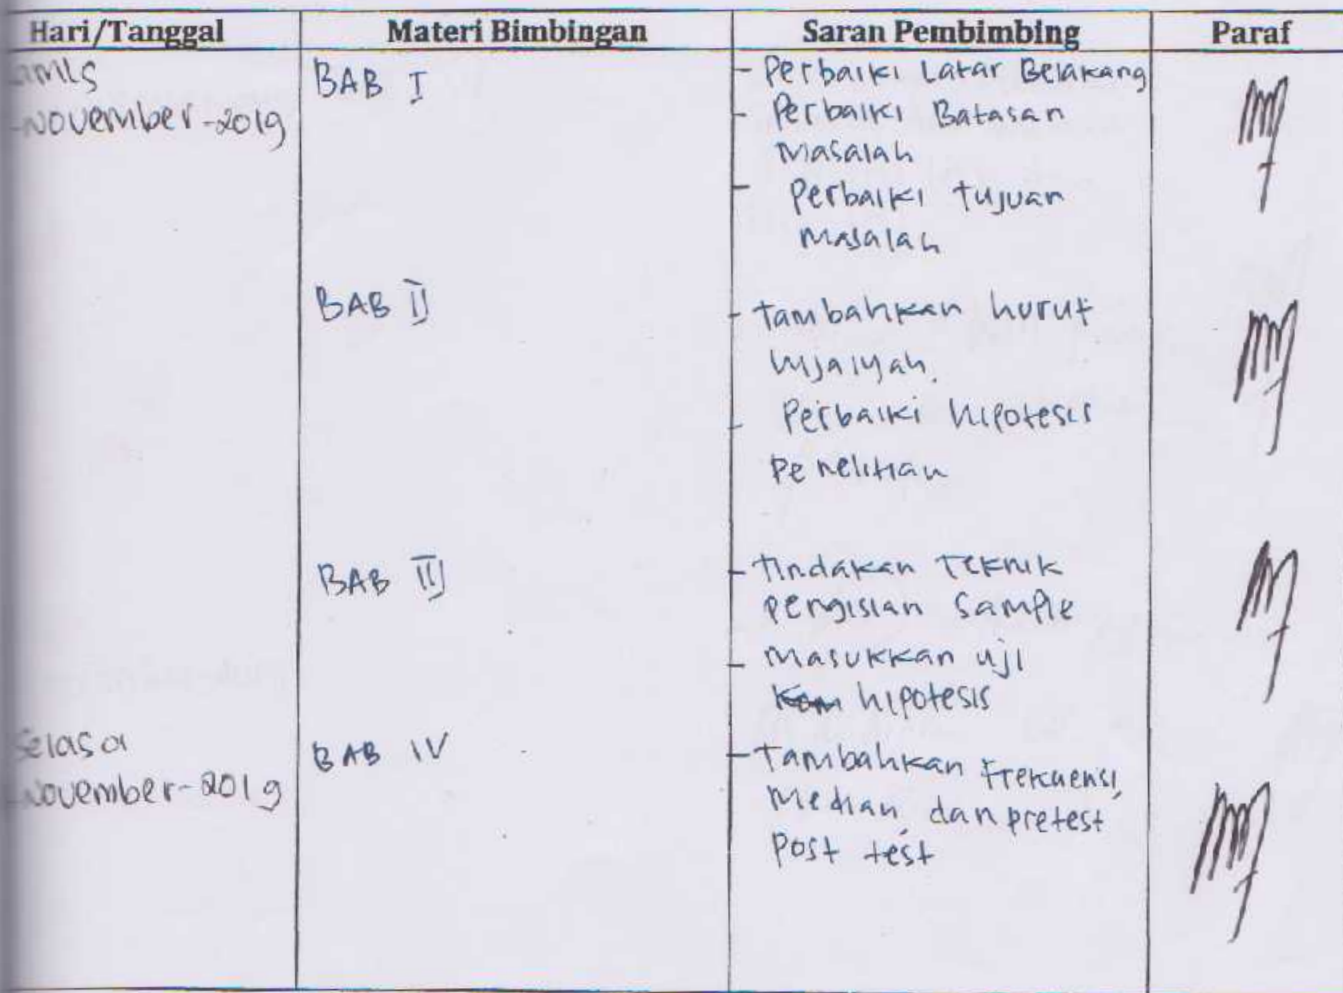 Hari/Tanggal Materi Bimbingan Saran Pembimbing Paraf
amis BAB I - Perbaiki Latar Belakang
-November-2019 - Perbaiki Batasan
Masalah
- Perbaiki tujuan
masalah
BAB II - tambahkan huruf
hijaiyah.
- Perbaiki hipotesis
Penelitian
BAB III - tindakan Teknik
pengisian sample
- masukkan uji
hipotesis
Selasa BAB IV - Tambahkan Frekuensi,
-November-2019 Median, dan pretest
post test